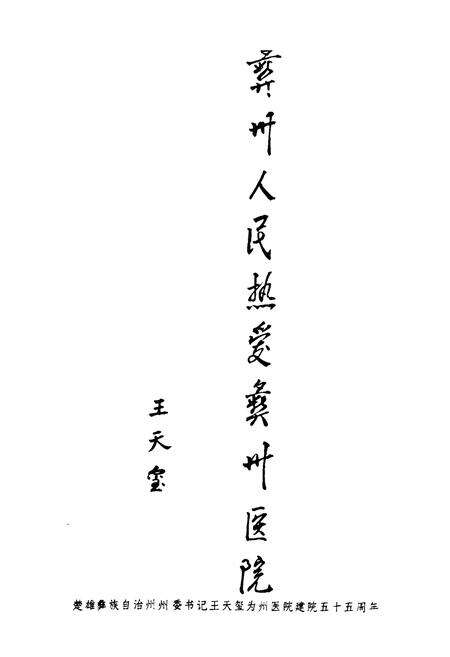 彝州人民热爱彝州医院
王天玺
楚雄彝族自治州州委书记王天玺为州医院建院五十五周年